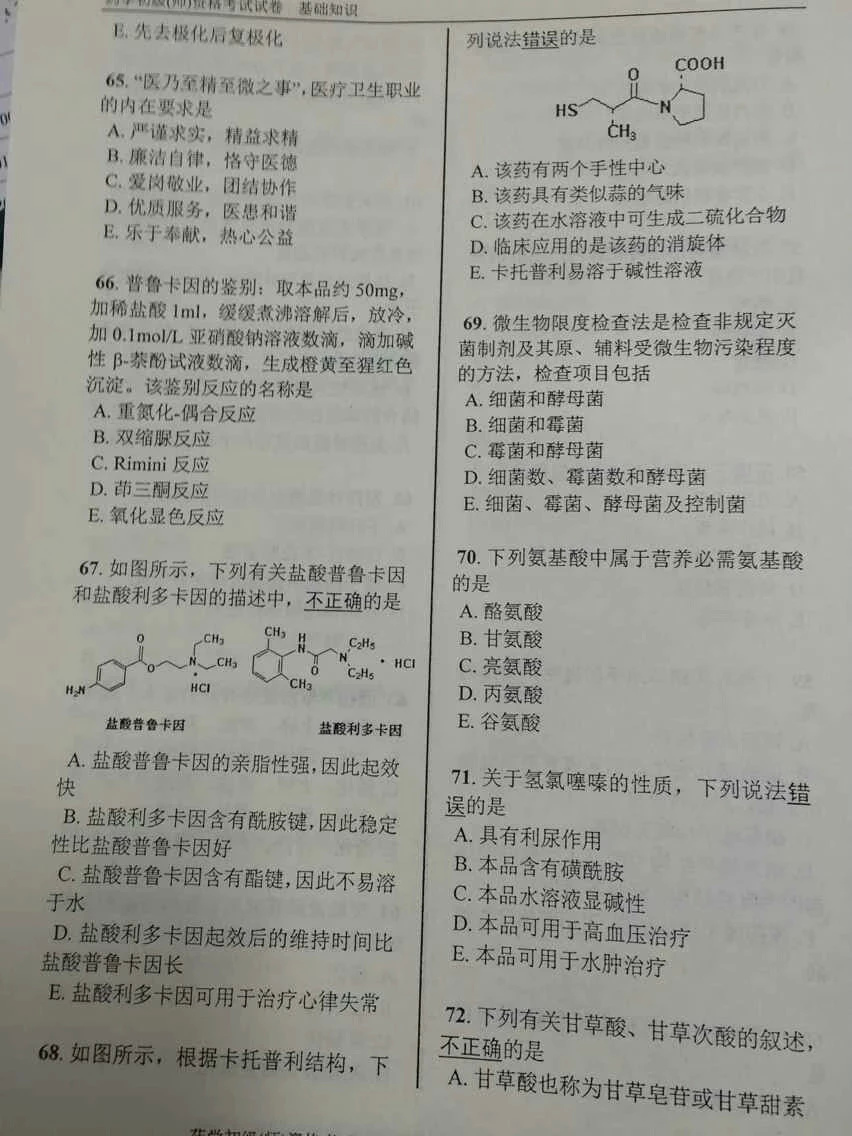 药学初级(师)资格考试试卷 基础知识
E. 先去极化后复极化
65. “医乃至精至微之事”，医疗卫生职业
的内在要求是
A. 严谨求实，精益求精
B. 廉洁自律，恪守医德
C. 爱岗敬业，团结协作
D. 优质服务，医患和谐
E. 乐于奉献，热心公益
66. 普鲁卡因的鉴别：取本品约 50mg，
加稀盐酸 1ml，缓缓煮沸溶解后，放冷，
加 0.1mol/L 亚硝酸钠溶液数滴，滴加碱
性 β-萘酚试液数滴，生成橙黄至猩红色
沉淀。该鉴别反应的名称是
A. 重氮化-偶合反应
B. 双缩脲反应
C. Rimini 反应
D. 茚三酮反应
E. 氧化显色反应
67. 如图所示，下列有关盐酸普鲁卡因
和盐酸利多卡因的描述中，不正确的是
O
CH₃
O
N
CH₃
H₂N
HCl
CH₃
H
N
O
N
C₂H₅
C₂H₅
CH₃
HCl
盐酸普鲁卡因
盐酸利多卡因
A. 盐酸普鲁卡因的亲脂性强，因此起效
快
B. 盐酸利多卡因含有酰胺键，因此稳定
性比盐酸普鲁卡因好
C. 盐酸普鲁卡因含有酯键，因此不易溶
于水
D. 盐酸利多卡因起效后的维持时间比
盐酸普鲁卡因长
E. 盐酸利多卡因可用于治疗心律失常
68. 如图所示，根据卡托普利结构，下
列说法错误的是
COOH
O
HS
N
CH₃
A. 该药有两个手性中心
B. 该药具有类似蒜的气味
C. 该药在水溶液中可生成二硫化合物
D. 临床应用的是该药的消旋体
E. 卡托普利易溶于碱性溶液
69. 微生物限度检查法是检查非规定灭
菌制剂及其原、辅料受微生物污染程度
的方法，检查项目包括
A. 细菌和酵母菌
B. 细菌和霉菌
C. 霉菌和酵母菌
D. 细菌数、霉菌数和酵母菌
E. 细菌、霉菌、酵母菌及控制菌
70. 下列氨基酸中属于营养必需氨基酸
的是
A. 酪氨酸
B. 甘氨酸
C. 亮氨酸
D. 丙氨酸
E. 谷氨酸
71. 关于氢氯噻嗪的性质，下列说法错
误的是
A. 具有利尿作用
B. 本品含有磺酰胺
C. 本品水溶液显碱性
D. 本品可用于高血压治疗
E. 本品可用于水肿治疗
72. 下列有关甘草酸、甘草次酸的叙述，
不正确的是
A. 甘草酸也称为甘草皂苷或甘草甜素